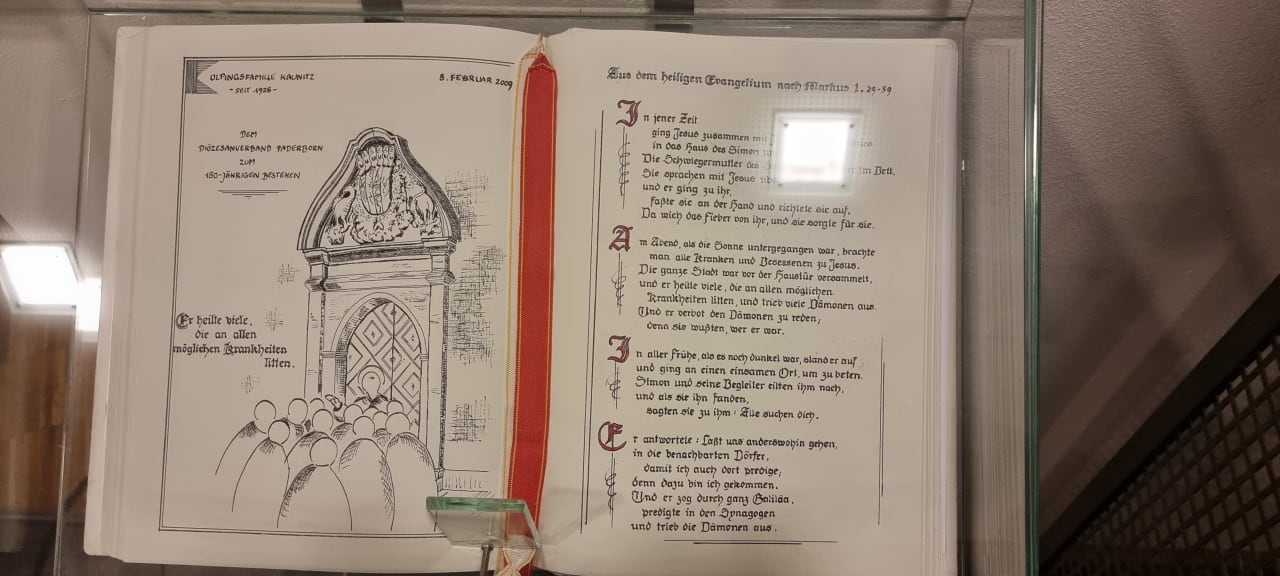 OLPINGSFAMILIE KAUNITZ
- SEIT 1926 -
8. FEBRUAR 2009
DEM
DIÖZESANVERBAND PADERBORN
ZUM
150-JÄHRIGEN BESTEHEN
Er heilte viele,
die an allen
möglichen Krankheiten
litten.
Aus dem heiligen Evangelium nach Markus 1. 29-39
In jener Zeit
ging Jesus zusammen mit
in das Haus des Simon
Die Schwiegermutter des im Bett.
Sie sprachen mit Jesus
und er ging zu ihr,
faßte sie an der Hand und richtete sie auf.
Da wich das Fieber von ihr, und sie sorgte für sie.
Am Abend, als die Sonne untergegangen war, brachte
man alle Kranken und Besessenen zu Jesus.
Die ganze Stadt war vor der Haustür versammelt,
und er heilte viele, die an allen möglichen
Krankheiten litten, und trieb viele Dämonen aus.
Und er verbot den Dämonen zu reden;
denn sie wußten, wer er war.
In aller Frühe, als es noch dunkel war, stand er auf
und ging an einen einsamen Ort, um zu beten.
Simon und seine Begleiter eilten ihm nach,
und als sie ihn fanden,
sagten sie zu ihm: Alle suchen dich.
Er antwortete: Laßt uns anderswohin gehen,
in die benachbarten Dörfer,
damit ich auch dort predige;
denn dazu bin ich gekommen.
Und er zog durch ganz Galiläa,
predigte in den Synagogen
und trieb die Dämonen aus.